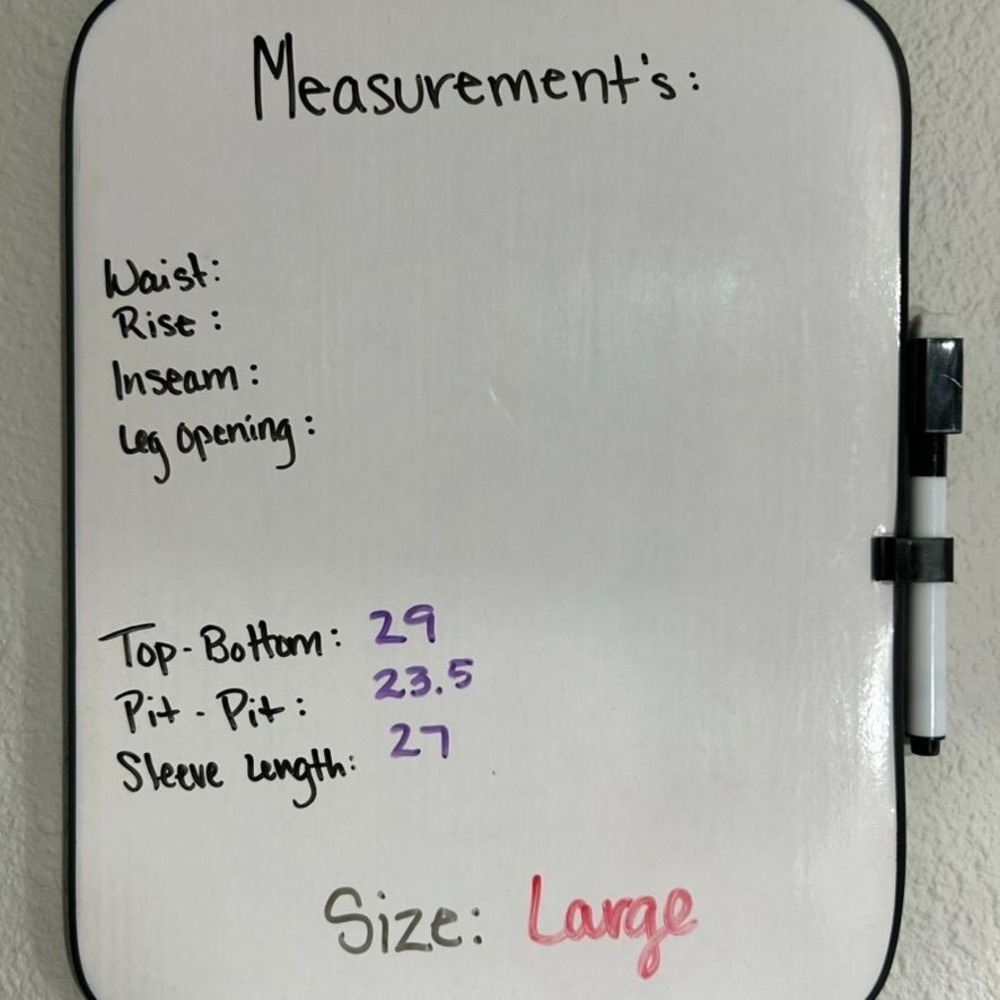 Measurement's:
Waist:
Rise:
Inseam:
Leg Opening:
Top-Bottom: 29
Pit-Pit: 23.5
Sleeve Length: 27
Size: Large